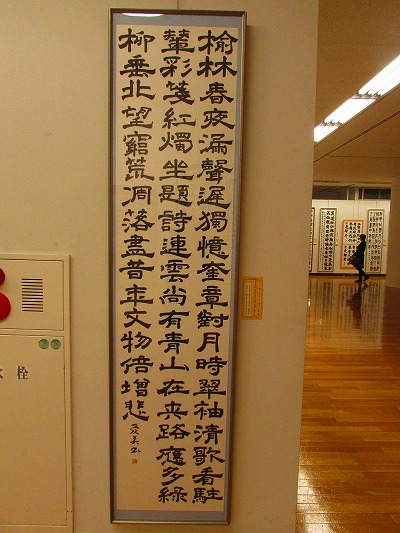 榆林春夜漏聲遲獨憶崔章對月時翠袖清歌看駐
輦彩箋紅燭坐題詩連雲尚有青山在夾路應多綠
柳垂北望窮荒凋落盡昔年文物倍增悲
栓